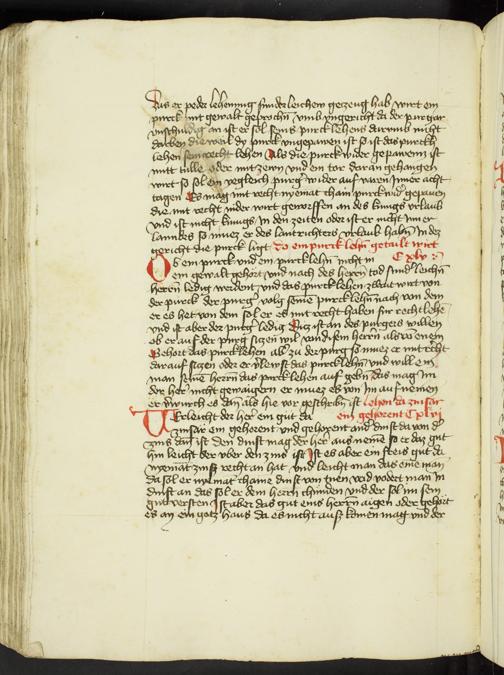 das er peder lehennung sunderleichew gezewg hab wirt ein
purck mit gewalt geprochn vmb vngericht da der purgär
vnschuldig an ist er sol seins purcklehens darumb nicht
darben die weil dy purck vngepawen ist so ist das purckh
lehen lehen Als die purck wider gepawenn ist
mitt oder mit zewn vnd ein tor daran gehangen
wirt so sol ein yegleich purgär wider auf varen inner acht
tagen Es mag mit recht nyemat chain purck wider gepawen
die mit recht nider wirt geworffen an des kunigs vrlaub
vnd ist nicht kunigs in den zeiten oder ist er nicht inner
lanndes so muez er des lantrichters vrlaub habn in des
gericht die purck ligt So ein purck lehn getailt wirt
Ob ein purck vnd ein purcklehn nicht in Cxlv
ein gewalt gehort vnd nach des herrn tod sind leichn
herrn ledig werdent vnd das purcklehen zwat wirt von
der purck der purgär volg seinem purcklehn nach von dem
er es het von dem sol er es mit recht haben für recht lehe
vnd ist aber der purgär ledig Ez ist an des purgers willen
ob er auf der purg sitzen wil von disem herrn als von enem
Gehort das purcklehen als zu der purg so muez er mit recht
darauf sitzen oder er das purcklehn vnd will ein
man seinem herrn das purcklehen auf gebn das mag im
der her nicht gewaigern er muez es von im auf nemen
er würch es dan als hie vor geschribn ist lehen da zinsär
Verleicht der her ein gut da ein gehorent Cxlvj
zinsär ein gehorent vnd gehoxent vnd dinst da von dez
zins dan ist den dinst mag der her aus nemen so er daz gut
hin leicht der vber den zins ist Ist es aber ein freis gut da
nyemat zins recht an hat vnd leicht man das eine man
da sol er nyemat chaine dinst von tuen wo vodert man in
dinst an das sol er dem herrn chunden vnd der sol im sein
gut versten Ist aber das gut eins herrn aigen oder gehört
es an ein gotz haus da es nicht aus komen mag vnd der